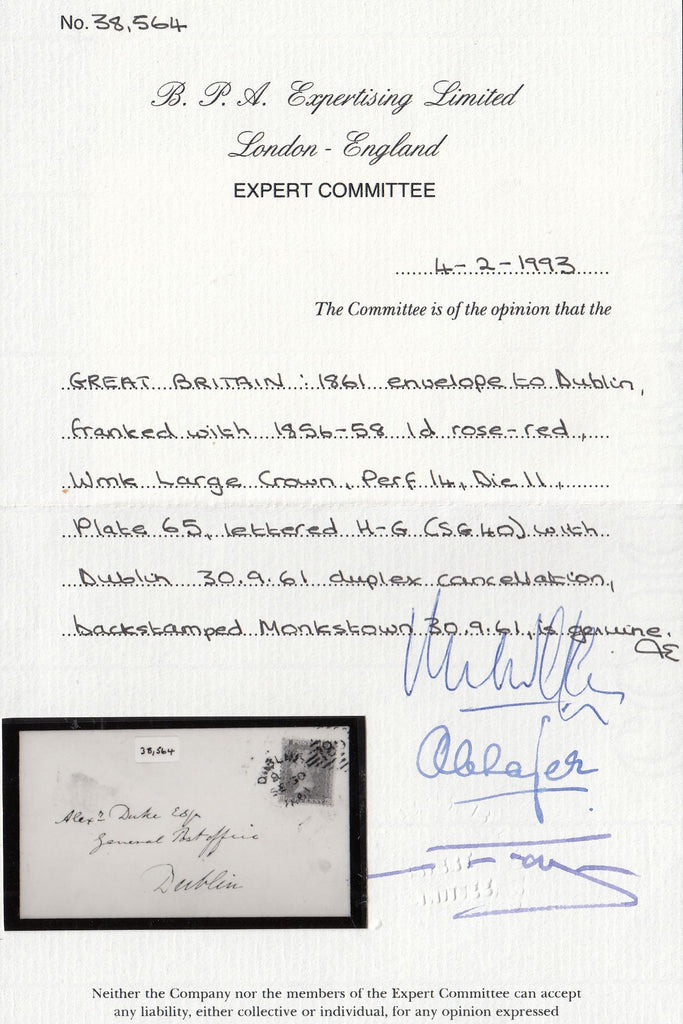 No. 38,564
B. P. A. Expertising Limited
London - England
EXPERT COMMITTEE
4-2-1993
The Committee is of the opinion that the
GREAT BRITAIN : 1861 envelope to Dublin,
franked with 1856-58 1d rose-red,
Wmk Large Crown, Perf 14, Die 11,
Plate 65, lettered H-G (SG40) with
Dublin 30.9.61 duplex cancellation,
backstamped Monkstown 30.9.61, is genuine.
38,564
Alexr Duke Esqr
General Post office
Dublin
Neither the Company nor the members of the Expert Committee can accept
any liability, either collective or individual, for any opinion expressed